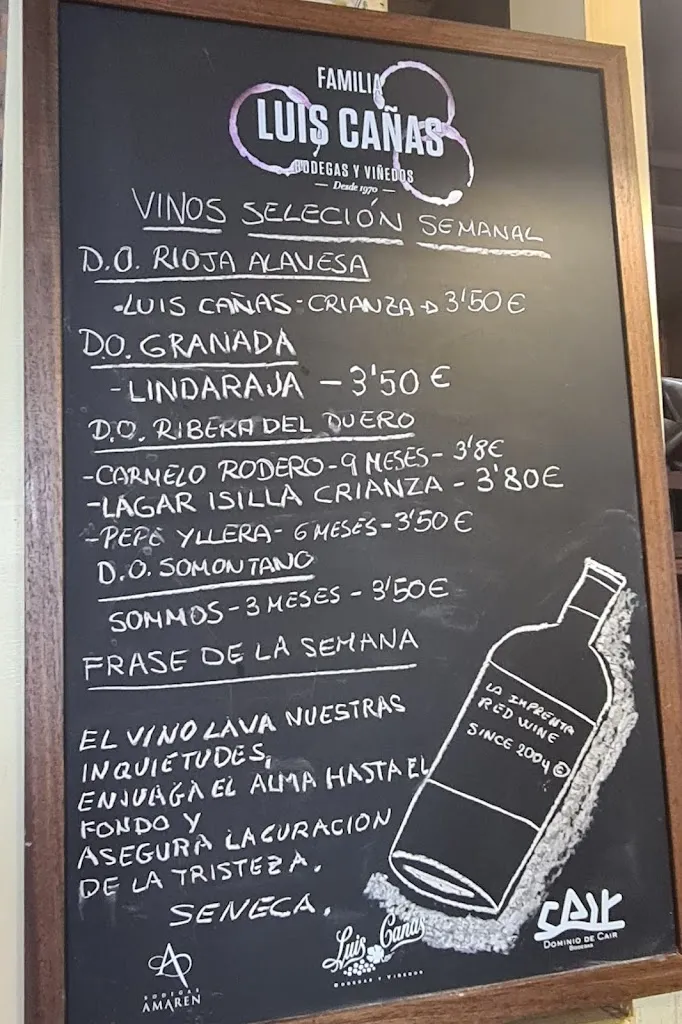 FAMILIA
LUIS CAÑAS
BODEGAS Y VIÑEDOS
Desde 1970
VINOS SELECIÓN SEMANAL
D.O. RIOJA ALAVESA
-LUIS CAÑAS - CRIANZA → 3'50 €
D.O. GRANADA
- LINDARAJA - 3'50 €
D.O. RIBERA DEL DUERO
-CARMELO RODERO - 9 MESES - 3'8€
-LAGAR ISILLA CRIANZA - 3'80€
-PEPE YLLERA - 6 MESES - 3'50 €
D.O. SOMONTANO
SOMMOS - 3 MESES - 3'50€
FRASE DE LA SEMANA
EL VINO LAVA NUESTRAS
INQUIETUDES,
ENJUAGA EL ALMA HASTA EL
FONDO Y
ASEGURA LA CURACION
DE LA TRISTEZA.
SENECA.
LA IMPRENTA
RED WINE
SINCE 2004 ©
BODEGAS
AMAREN
Luis Cañas
BODEGAS Y VIÑEDOS
CAIR
DOMINIO DE CAIR
BODEGAS